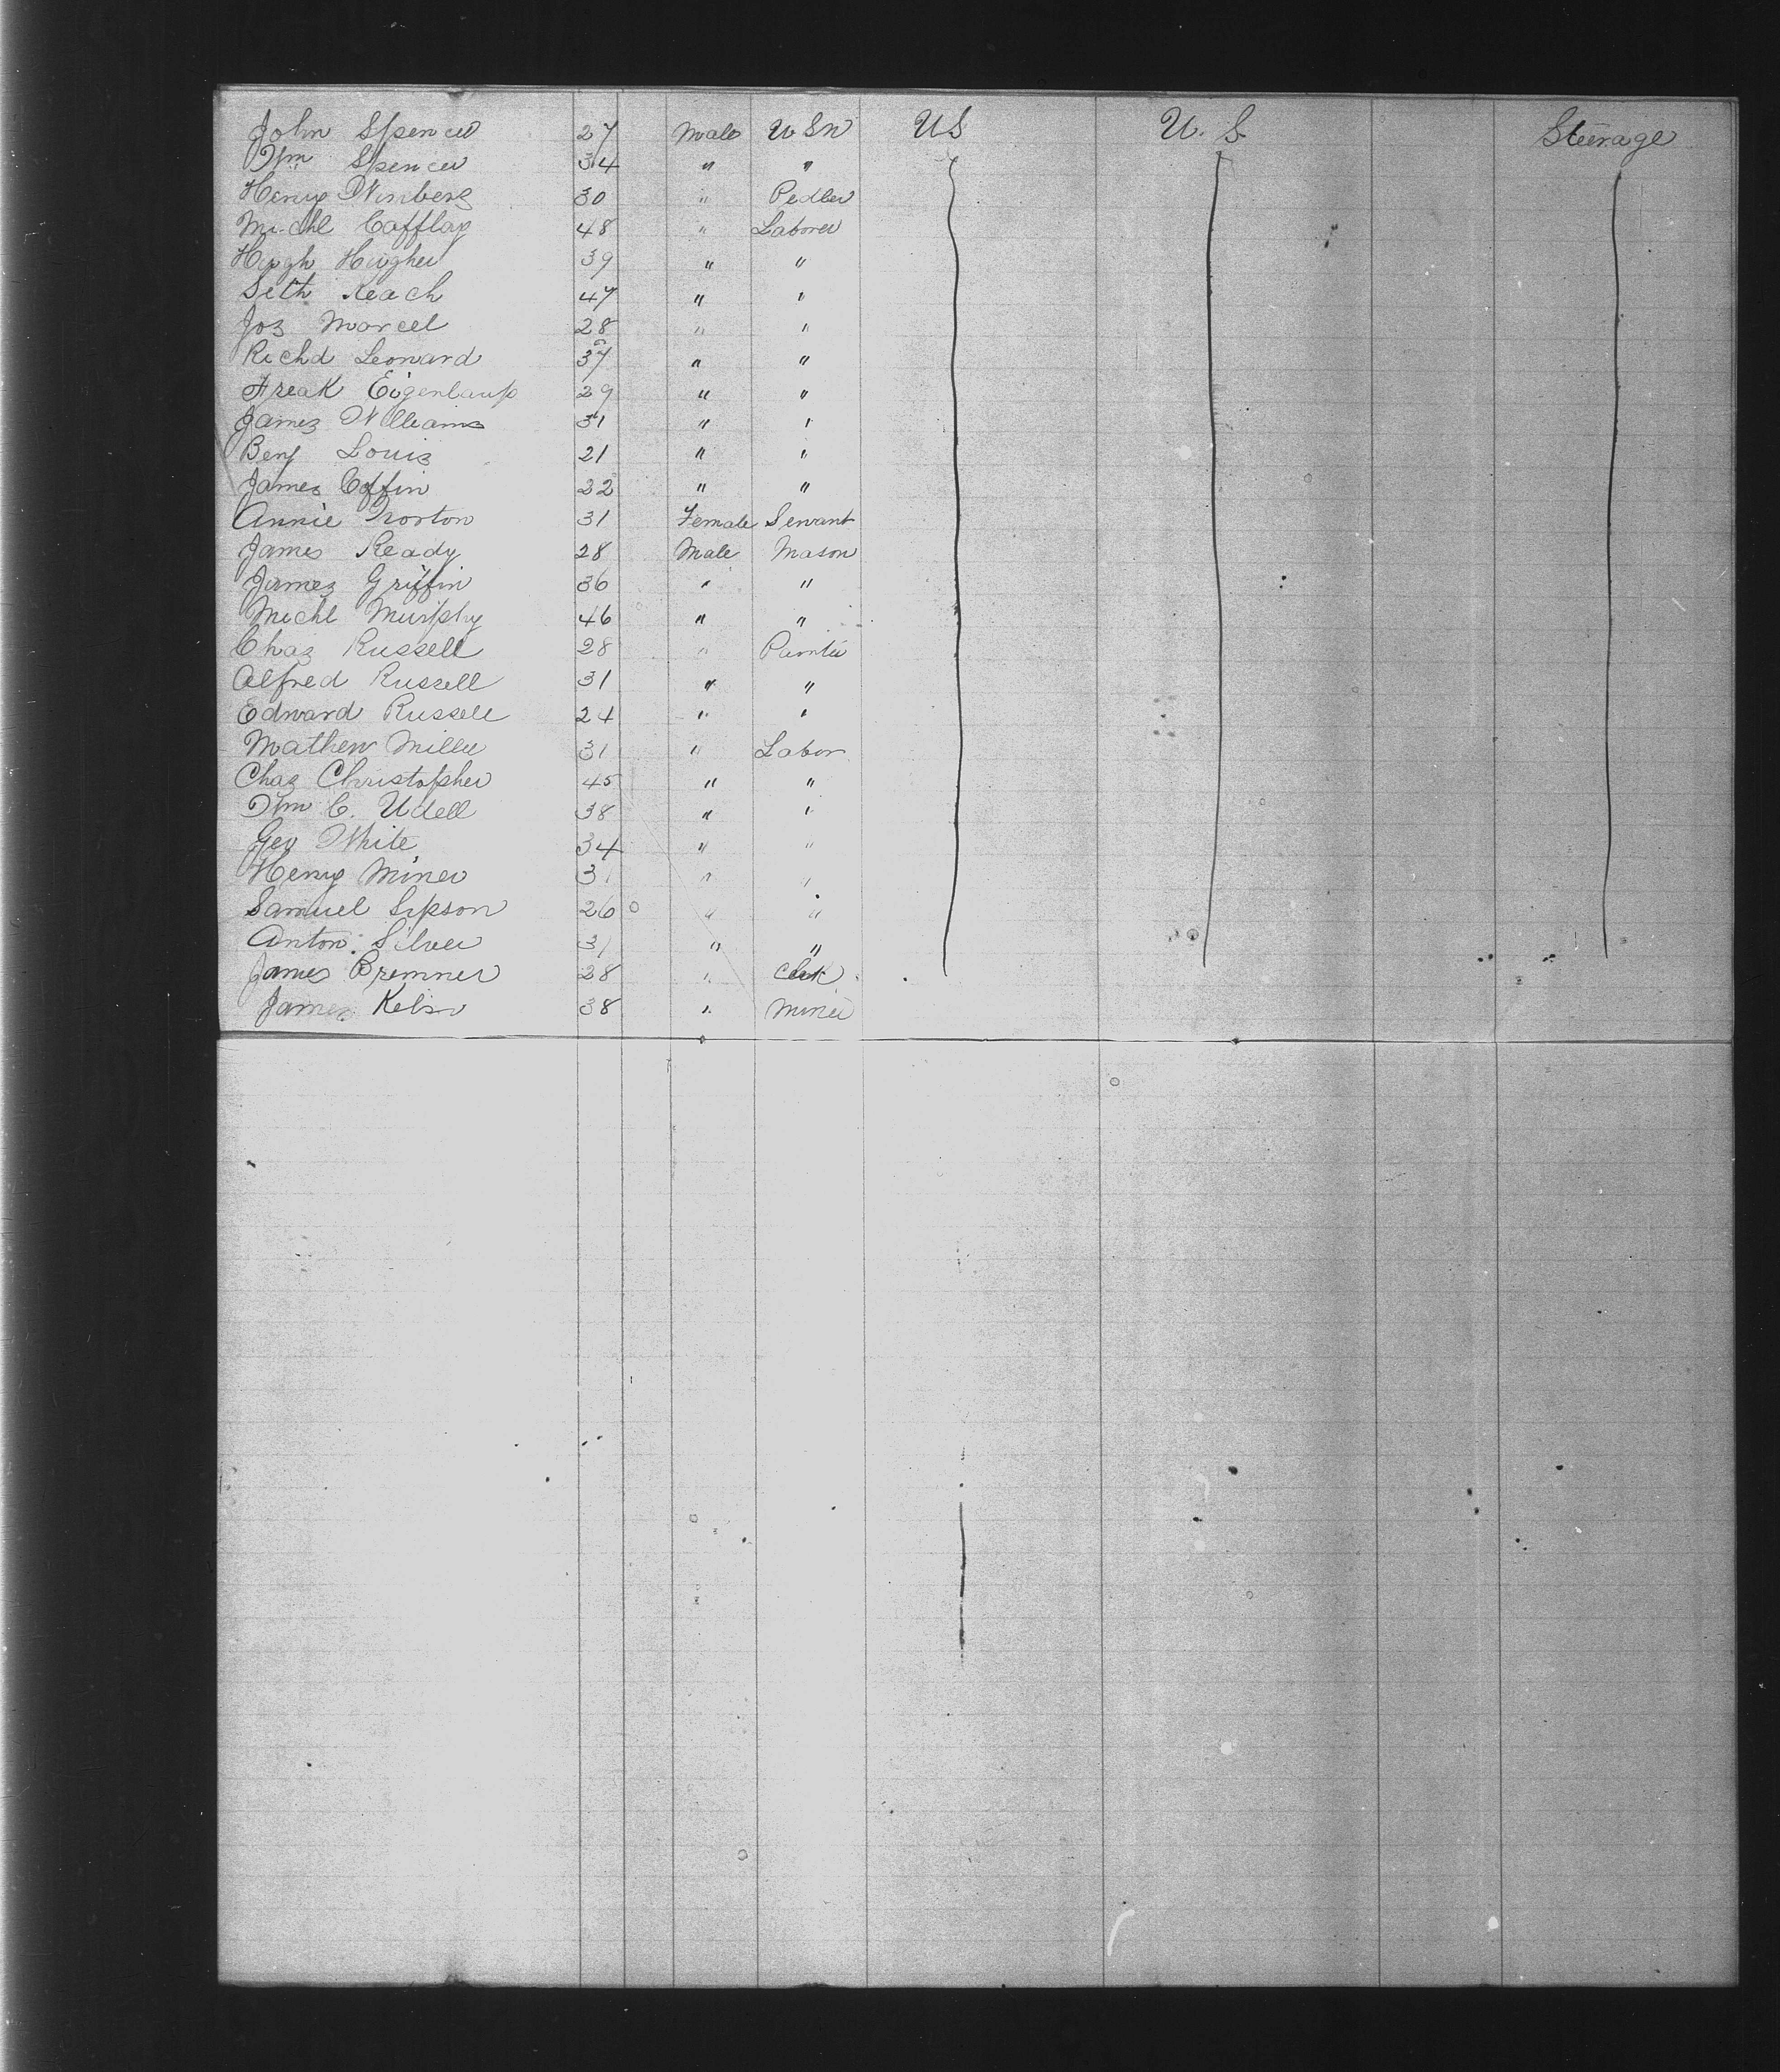 John Spencer 27 Male U S N U S U. S. Steerage
Wm Spencer 34 " "
Henry Winberg 30 " Pedler
Michl Cafflay 48 " Laborer
Hugh Hughes 39 " "
Seth Keach 47 " "
Jos Marcel 28 " "
Richd Leonard 37 " "
Freak Eigenlaup 29 " "
James Williams 31 " "
Benj Louis 21 " "
James Coffin 32 " "
Annie Norton 31 Female Servant
James Ready 28 Male Mason
James Griffin 36 " "
Michl Murphy 46 " "
Chas Russell 28 " Painter
Alfred Russell 31 " "
Edward Russell 24 " "
Mathew Miller 31 " Labor
Chas Christopher 45 " "
Wm C. Udell 38 " "
Geo White 34 " "
Henry Miner 31 " "
Samuel Sipson 26 " "
Anton Silver 31 " "
James Bremner 28 " Clerk
James Kelso 38 " Miner